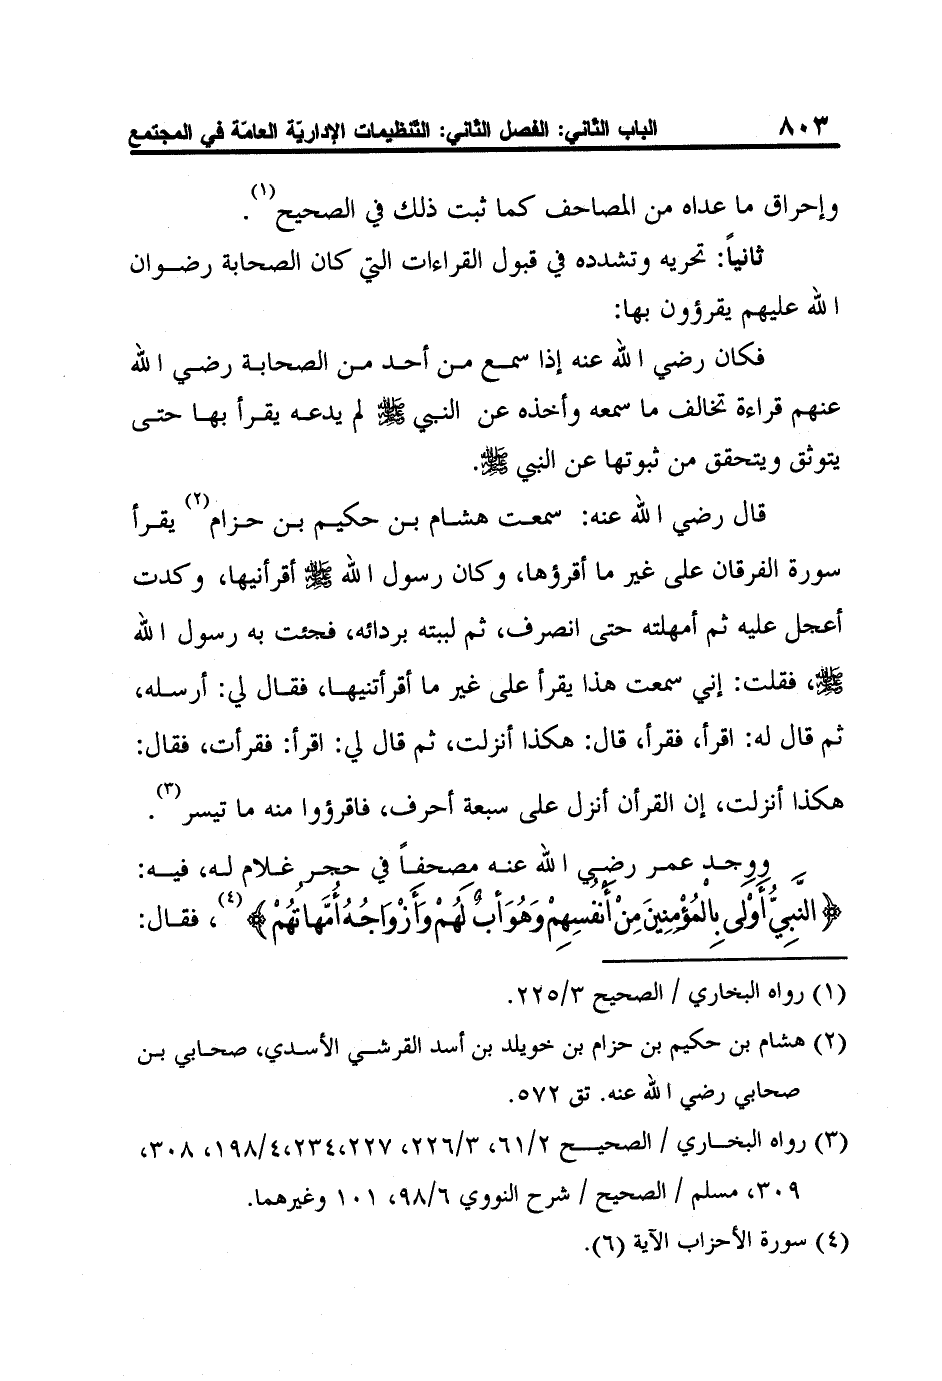 ٨٠٣ الباب الثاني: الفصل الثاني: التنظيمات الإداريّة العامّة في المجتمع
وإحراق ما عداه من المصاحف كما ثبت ذلك في الصحيح(١).
ثانياً: تحريه وتشدده في قبول القراءات التي كان الصحابة رضوان
الله عليهم يقرؤون بها:
فكان رضي الله عنه إذا سمع من أحد من الصحابة رضي الله
عنهم قراءة تخالف ما سمعه وأخذه عن النبي ﷺ لم يدعه يقرأ بها حتى
يتوثق ويتحقق من ثبوتها عن النبي ﷺ.
قال رضي الله عنه: سمعت هشام بن حكيم بن حزام(٢) يقرأ
سورة الفرقان على غير ما أقرؤها، وكان رسول الله ﷺ أقرأنيها، وكدت
أعجل عليه ثم أمهلته حتى انصرف، ثم لببته بردائه، فجئت به رسول الله
ﷺ، فقلت: إني سمعت هذا يقرأ على غير ما أقرأتنيها، فقال لي: أرسله،
ثم قال له: اقرأ، فقرأ، قال: هكذا أنزلت، ثم قال لي: اقرأ: فقرأت، فقال:
هكذا أنزلت، إن القرأن أنزل على سبعة أحرف، فاقرؤوا منه ما تيسر(٣).
ووجد عمر رضي الله عنه مصحفاً في حجر غلام له، فيه:
﴿النَّبِيُّ أَوْلَى بِالْمُؤْمِنِينَ مِنْ أَنفُسِهِمْ وَهُوَ أَبٌ لَهُمْ وَأَزْوَاجُهُ أُمَّهَاتُهُمْ﴾(٤)، فقال:
(١) رواه البخاري / الصحيح ٢٢٥/٣.
(٢) هشام بن حكيم بن حزام بن خويلد بن أسد القرشي الأسدي، صحابي بن
صحابي رضي الله عنه. تق ٥٧٢.
(٣) رواه البخاري / الصحيح ٦١/٢، ٢٢٦/٣، ٢٢٧، ٢٣٤، ١٩٨/٤، ٣٠٨،
٣٠٩، مسلم / الصحيح / شرح النووي ٩٨/٦، ١٠١ وغيرهما.
(٤) سورة الأحزاب الآية (٦).